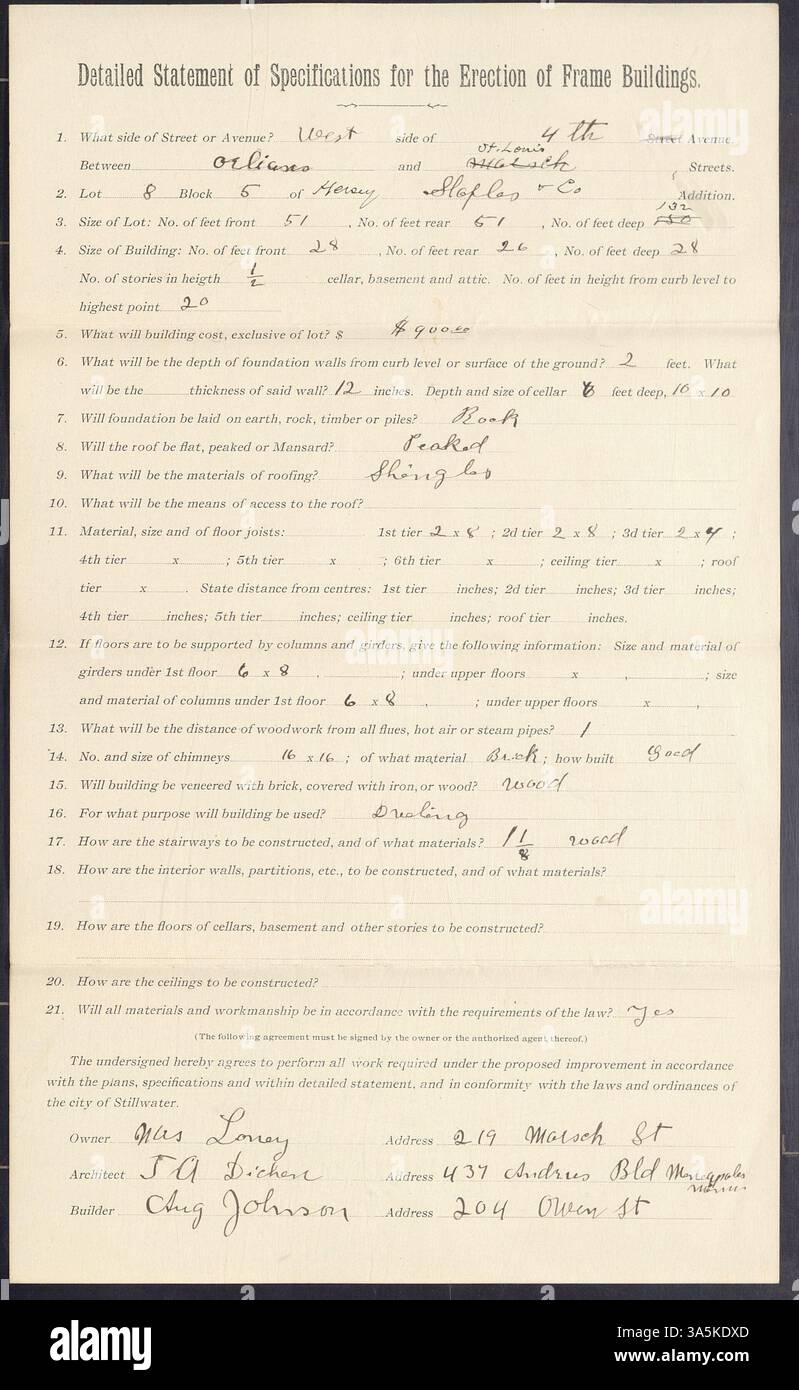 Detailed Statement of Specifications for the Erection of Frame Buildings.
1. What side of Street or Avenue? West side of 4th Street Avenue.
St. Louis
Between Orlians and Matsch Streets.
2. Lot 8 Block 5 of Hersey Staples & Co Addition.
132
3. Size of Lot: No. of feet front 51, No. of feet rear 51, No. of feet deep 150
4. Size of Building: No. of feet front 28, No. of feet rear 26, No. of feet deep 28
No. of stories in heigth 1/2 cellar, basement and attic. No. of feet in height from curb level to
highest point 20
5. What will building cost, exclusive of lot? $ $900.00
6. What will be the depth of foundation walls from curb level or surface of the ground? 2 feet. What
will be the thickness of said wall? 12 inches. Depth and size of cellar feet deep, 10 x 10
7. Will foundation be laid on earth, rock, timber or piles? Rock
8. Will the roof be flat, peaked or Mansard? Peaked
9. What will be the materials of roofing? Shingles
10. What will be the means of access to the roof?
11. Material, size and of floor joists: 1st tier 2 x 8; 2d tier 2 x 8; 3d tier 2 x 4;
4th tier x ; 5th tier x ; 6th tier x ; ceiling tier x ; roof
tier x . State distance from centres: 1st tier inches; 2d tier inches; 3d tier inches;
4th tier inches; 5th tier inches; ceiling tier inches; roof tier inches.
12. If floors are to be supported by columns and girders, give the following information: Size and material of
girders under 1st floor 6 x 8 , ; under upper floors x , ; size
and material of columns under 1st floor 6 x 8 , ; under upper floors x ,
13. What will be the distance of woodwork from all flues, hot air or steam pipes? 1
14. No. and size of chimneys 16 x 16; of what material Brick; how built Good
15. Will building be veneered with brick, covered with iron, or wood? wood
16. For what purpose will building be used? Dweling
17. How are the stairways to be constructed, and of what materials? 1 1/8 wood
18. How are the interior walls, partitions, etc., to be constructed, and of what materials?
19. How are the floors of cellars, basement and other stories to be constructed?
20. How are the ceilings to be constructed?
21. Will all materials and workmanship be in accordance with the requirements of the law? Yes
(The following agreement must be signed by the owner or the authorized agent thereof.)
The undersigned hereby agrees to perform all work required under the proposed improvement in accordance
with the plans, specifications and within detailed statement, and in conformity with the laws and ordinances of
the city of Stillwater.
Owner Mrs Loney Address 219 Matsch St
Architect J A Address 437 Andrus Bld
Builder Aug Johnson Address 204 Owen St
alamy
Image ID: 3A5KDXD
www.alamy.com